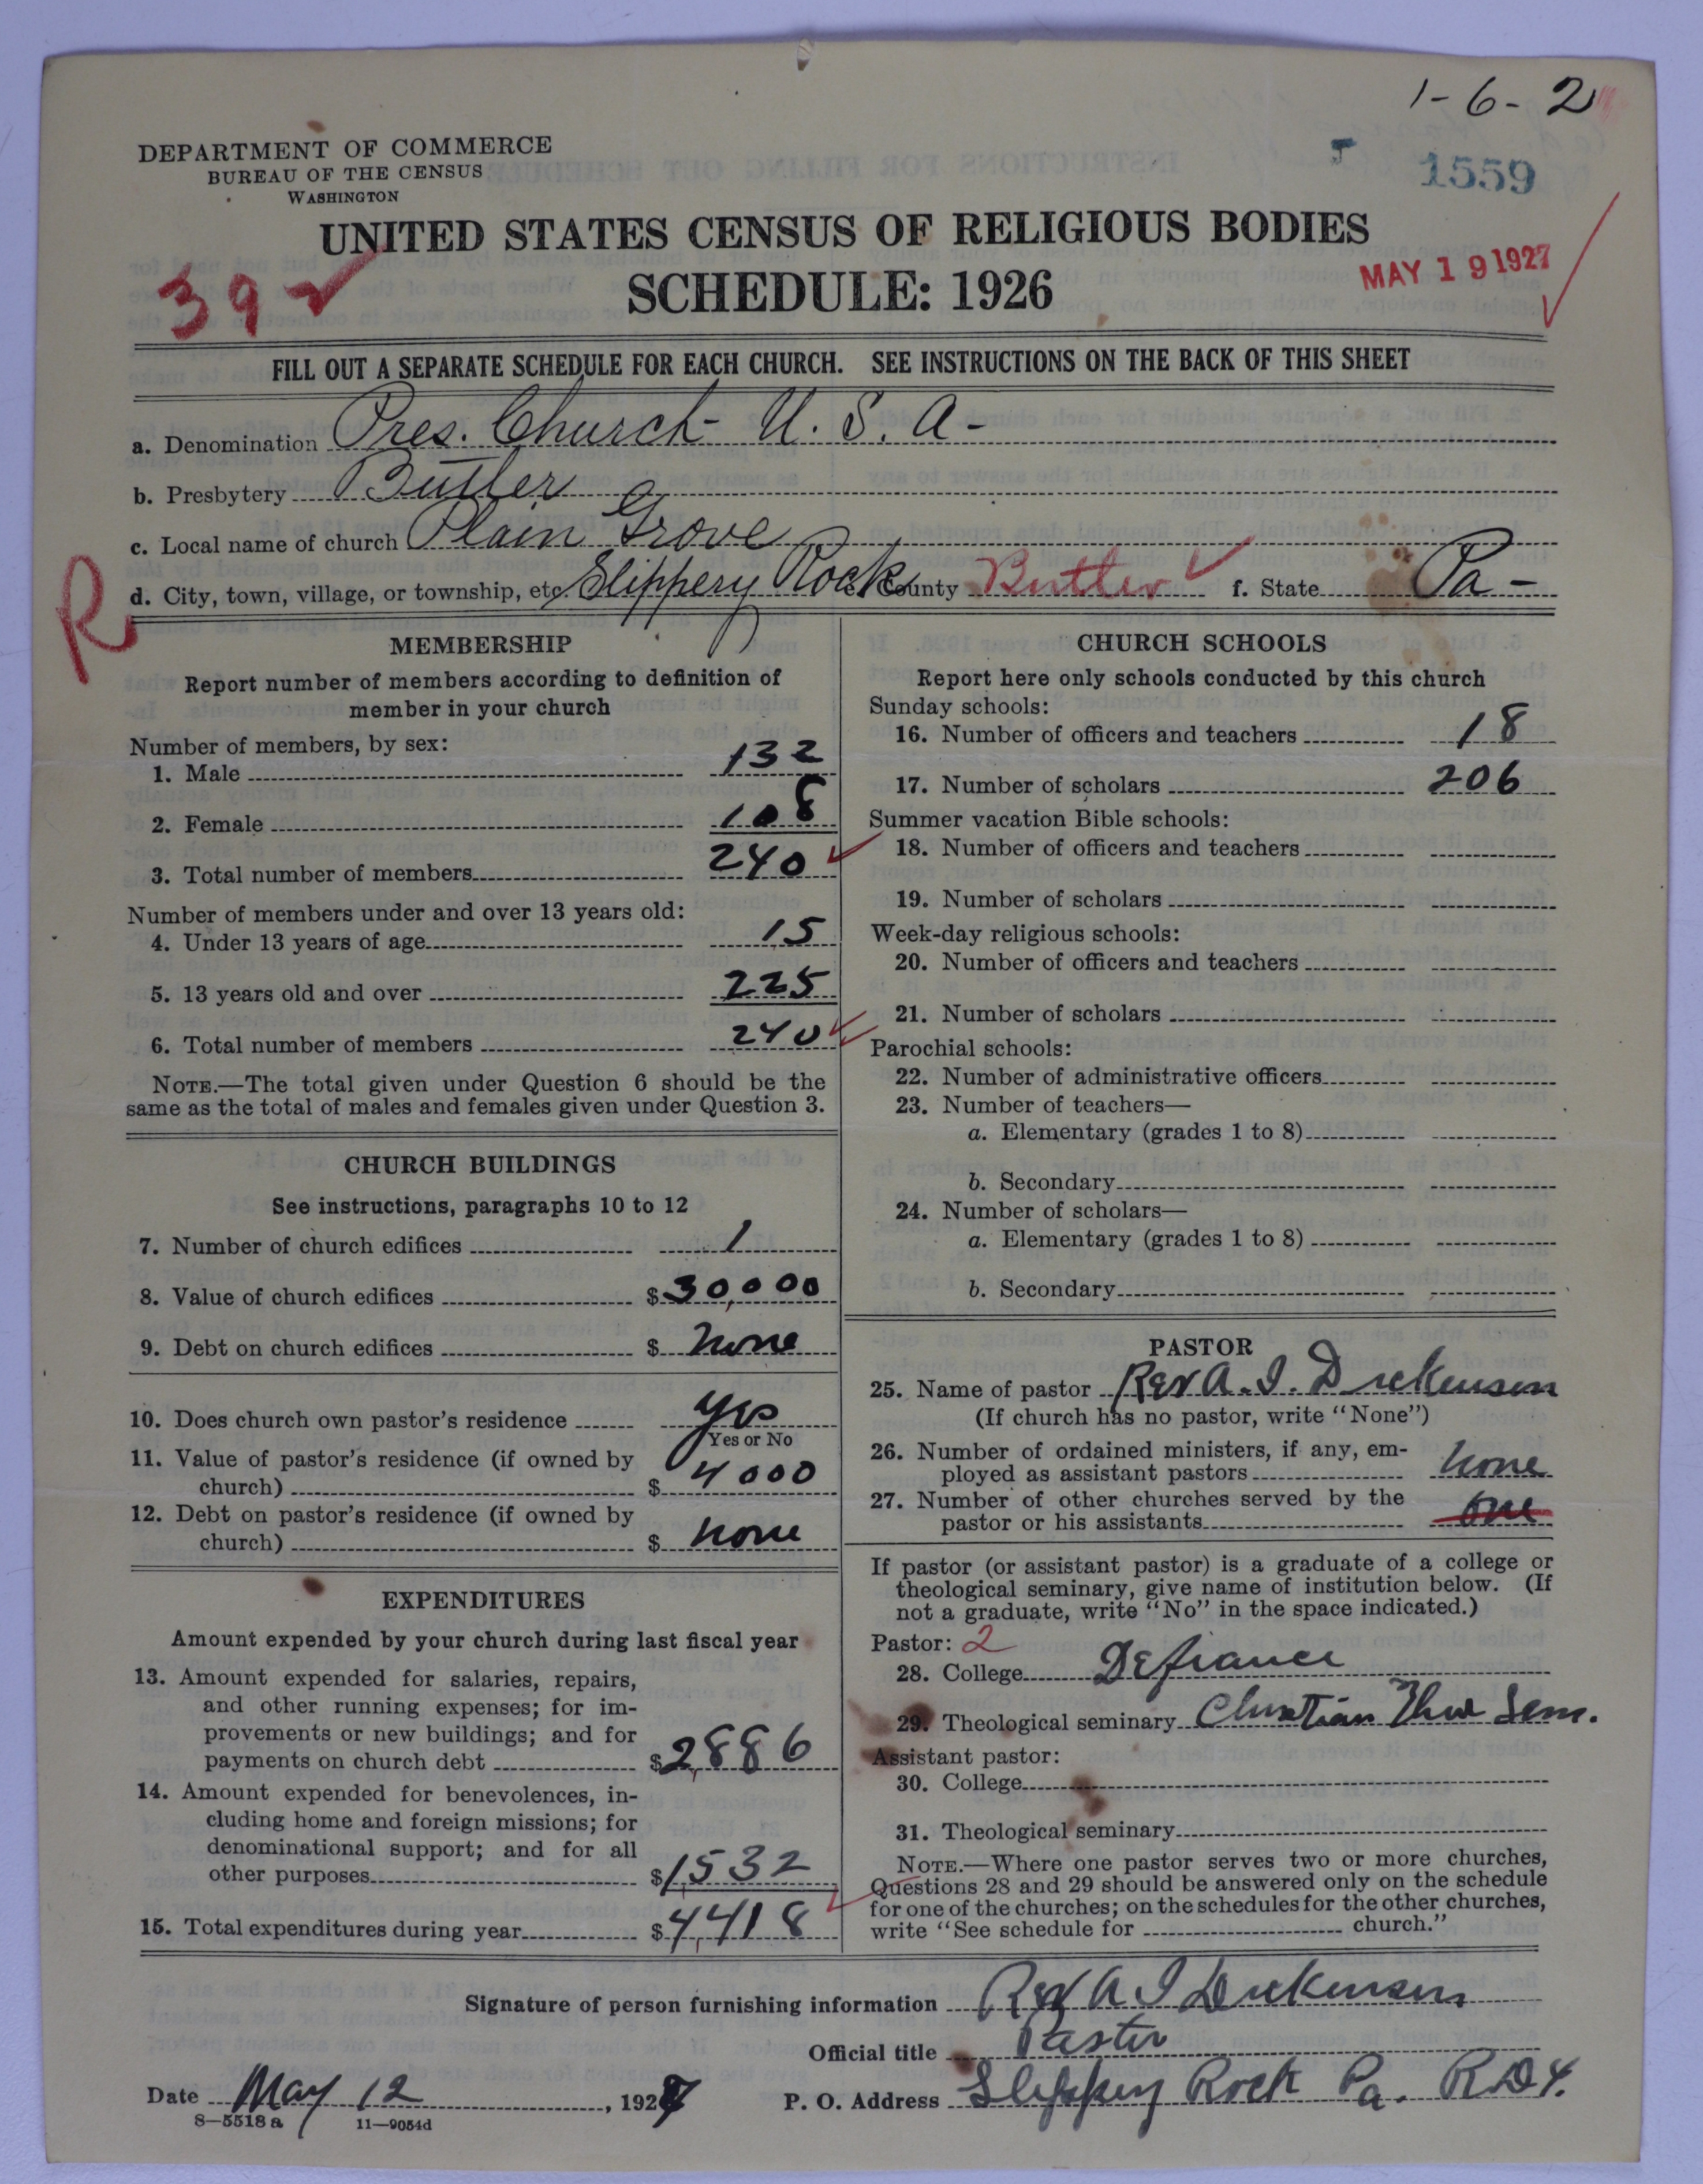 1-6-2
DEPARTMENT OF COMMERCE
BUREAU OF THE CENSUS
WASHINGTON
1559
UNITED STATES CENSUS OF RELIGIOUS BODIES
SCHEDULE: 1926
MAY 19 1927
392
FILL OUT A SEPARATE SCHEDULE FOR EACH CHURCH. SEE INSTRUCTIONS ON THE BACK OF THIS SHEET
a. Denomination Pres. Church - U. S. A -
b. Presbytery Butler
c. Local name of church Plain Grove
d. City, town, village, or township, etc. Slippery Rock e. County Butler f. State Pa -
R
MEMBERSHIP
Report number of members according to definition of
member in your church
Number of members, by sex:
1. Male 132
2. Female 108
3. Total number of members 240
Number of members under and over 13 years old:
4. Under 13 years of age 15
5. 13 years old and over 225
6. Total number of members 240
NOTE.—The total given under Question 6 should be the
same as the total of males and females given under Question 3.
CHURCH BUILDINGS
See instructions, paragraphs 10 to 12
7. Number of church edifices 1
8. Value of church edifices $30,000
9. Debt on church edifices $ none
10. Does church own pastor's residence yes
Yes or No
11. Value of pastor's residence (if owned by
church) $ 4000
12. Debt on pastor's residence (if owned by
church) $ none
EXPENDITURES
Amount expended by your church during last fiscal year
13. Amount expended for salaries, repairs,
and other running expenses; for im-
provements or new buildings; and for
payments on church debt $2,886
14. Amount expended for benevolences, in-
cluding home and foreign missions; for
denominational support; and for all
other purposes $1,532
15. Total expenditures during year $4,418
CHURCH SCHOOLS
Report here only schools conducted by this church
Sunday schools:
16. Number of officers and teachers 18
17. Number of scholars 206
Summer vacation Bible schools:
18. Number of officers and teachers
19. Number of scholars
Week-day religious schools:
20. Number of officers and teachers
21. Number of scholars
Parochial schools:
22. Number of administrative officers
23. Number of teachers—
a. Elementary (grades 1 to 8)
b. Secondary
24. Number of scholars—
a. Elementary (grades 1 to 8)
b. Secondary
PASTOR
25. Name of pastor Rev A. I. Dickenson
(If church has no pastor, write "None")
26. Number of ordained ministers, if any, em-
ployed as assistant pastors none
27. Number of other churches served by the
pastor or his assistants one
If pastor (or assistant pastor) is a graduate of a college or
theological seminary, give name of institution below. (If
not a graduate, write "No" in the space indicated.)
Pastor: 2
28. College Defiance
29. Theological seminary Christian Sem.
Assistant pastor:
30. College
31. Theological seminary
NOTE.—Where one pastor serves two or more churches,
Questions 28 and 29 should be answered only on the schedule
for one of the churches; on the schedules for the other churches,
write "See schedule for church."
Signature of person furnishing information Rev A I Dickenson
Official title Pastor
Date May 12, 1927 P. O. Address Slippery Rock Pa. RD4.
8—5518a 11—9054d